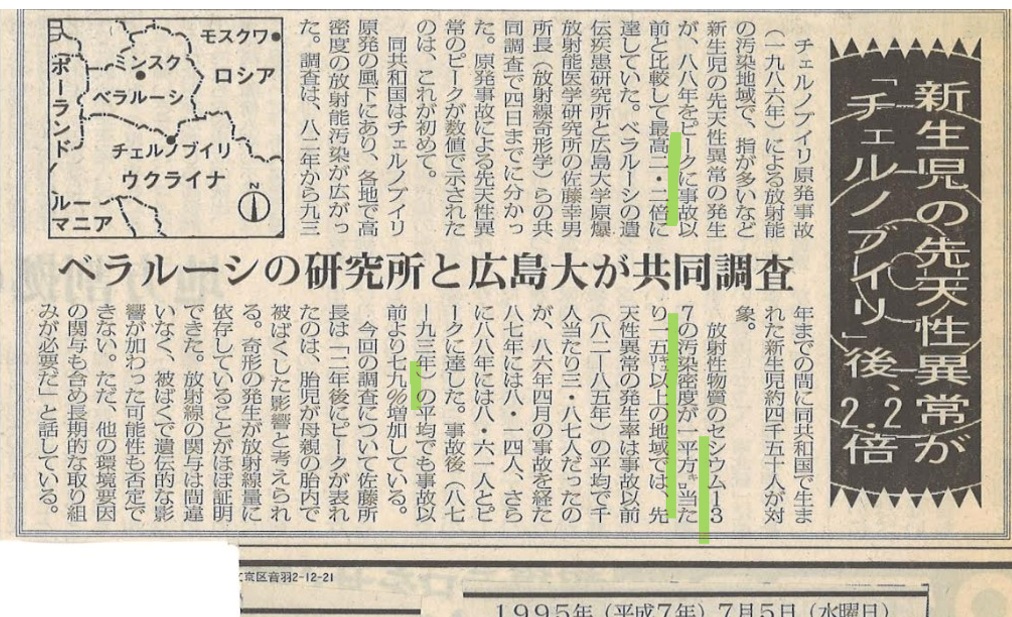 新生児の先天性異常が
「チェルノブイリ」後、2.2倍
ベラルーシの研究所と広島大が共同調査
チェルノブイリ原発事故
（一九八六年）による放射能
の汚染地域で、指が多いなど
新生児の先天性異常の発生
が、八八年をピークに事故以
前と比較して最高二・二倍に
達していた。ベラルーシの遺
伝疾患研究所と広島大学原爆
放射能医学研究所の佐藤幸男
所長（放射線奇形学）らの共
同調査で四日までに分かっ
た。原発事故による先天性異
常のピークが数値で示された
のは、これが初めて。
同共和国はチェルノブイリ
原発の風下にあり、各地で高
密度の放射能汚染が広がっ
た。調査は、八二年から九三
モスクワ
ロシア
ミンスク
ベラルーシ
ポーランド
チェルノブイリ
ウクライナ
ルー
マニア
N
年までの間に同共和国で生ま
れた新生児約四千五十人が対
象。
放射性物質のセシウム13
7の汚染密度が一平方㌔当た
り一五㌔以上の地域では、先
天性異常の発生率は事故以前
（八二―八五年）の平均で千
人当たり三・八七人だったの
が、八六年四月の事故を経た
八七年には八・一四人、さら
に八八年には八・六一人とピ
ークに達した。事故後（八七
―九三年）の平均でも事故以
前より七九％増加している。
今回の調査について佐藤所
長は「二年後にピークが表れ
たのは、胎児が母親の胎内で
被ばくした影響と考えられ
る。奇形の発生が放射線量に
依存していることがほぼ証明
できた。放射線の関与は間違
いなく、被ばくで遺伝的な影
響が加わった可能性も否定で
きない。ただ、他の環境要因
の関与も含め長期的な取り組
みが必要だ」と話している。
京区音羽2-12-21
1995年（平成7年）7月5日（水曜日）